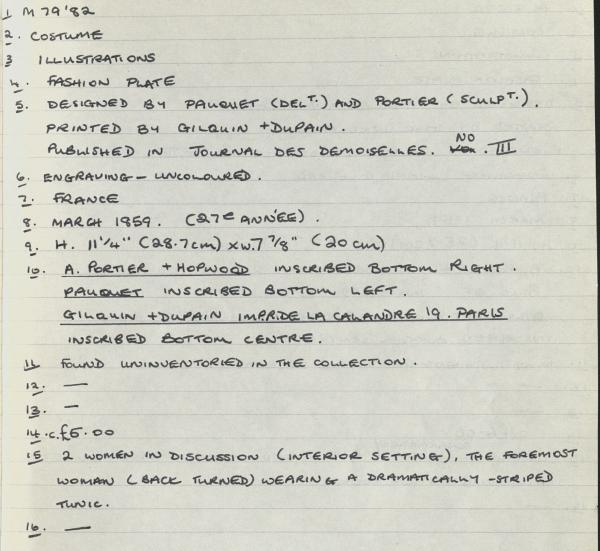 1 M 79 '82
2. COSTUME
3 ILLUSTRATIONS
4. FASHION PLATE
5. DESIGNED BY PAUQUET (DELT.) AND PORTIER (SCULPT.).
PRINTED BY GILQUIN + DUPAIN.
PUBLISHED IN JOURNAL DES DEMOISELLES. NO. III
6. ENGRAVING – UNCOLOURED.
7. FRANCE
8. MARCH 1859. (27e ANNÉE).
9. H. 11 1/4" (28.7cm) x W. 7 7/8" (20 cm)
10. A. PORTIER + HOPWOOD INSCRIBED BOTTOM RIGHT.
PAUQUET INSCRIBED BOTTOM LEFT.
GILQUIN + DUPAIN IMPR. DE LA CALANDRE 19. PARIS
INSCRIBED BOTTOM CENTRE.
11 FOUND UNINVENTORIED IN THE COLLECTION.
12. —
13. —
14. c.£5.00
15 2 WOMEN IN DISCUSSION (INTERIOR SETTING), THE FOREMOST
WOMAN (BACK TURNED) WEARING A DRAMATICALLY-STRIPED
TUNIC.
16. —